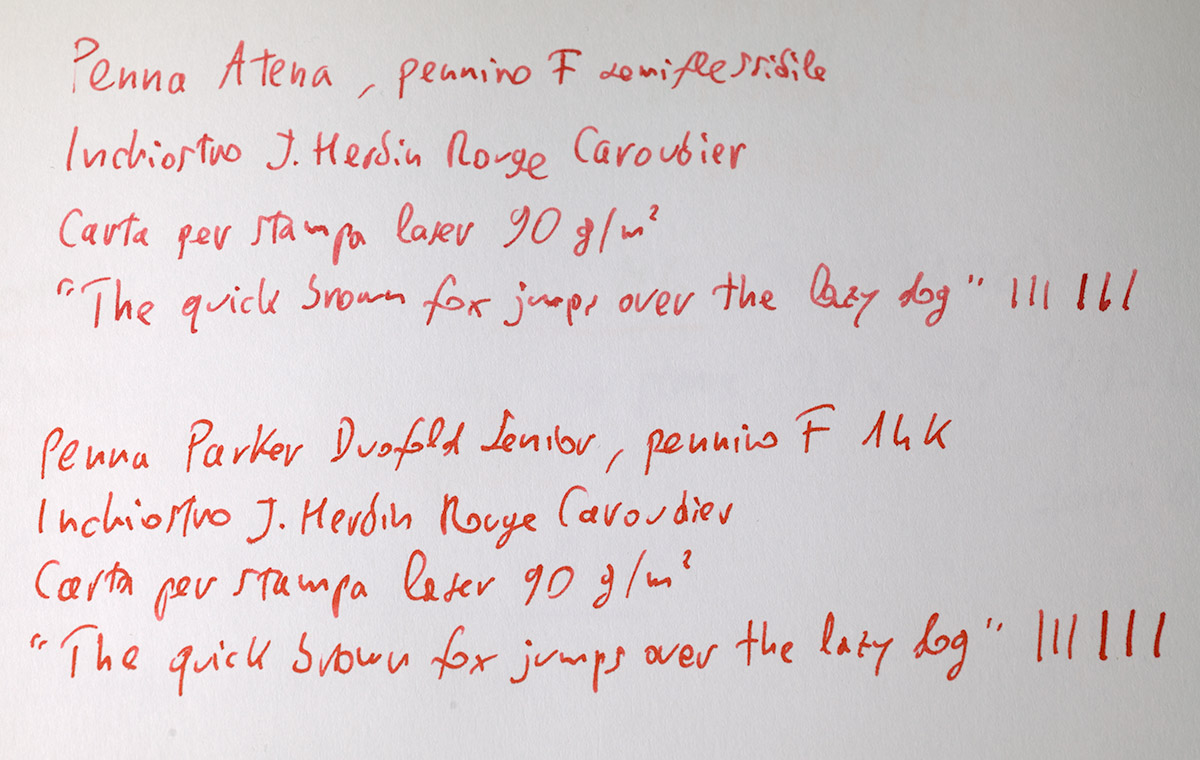 Penna Atena, pennino F semiflessibile
Inchiostro J. Herbin Rouge Caroubier
Carta per stampa laser 90 g/m²
"The quick brown fox jumps over the lazy dog" ||| |||
Penna Parker Duofold Senior, pennino F 14K
Inchiostro J. Herbin Rouge Caroubier
Carta per stampa laser 90 g/m²
"The quick brown fox jumps over the lazy dog" ||| |||